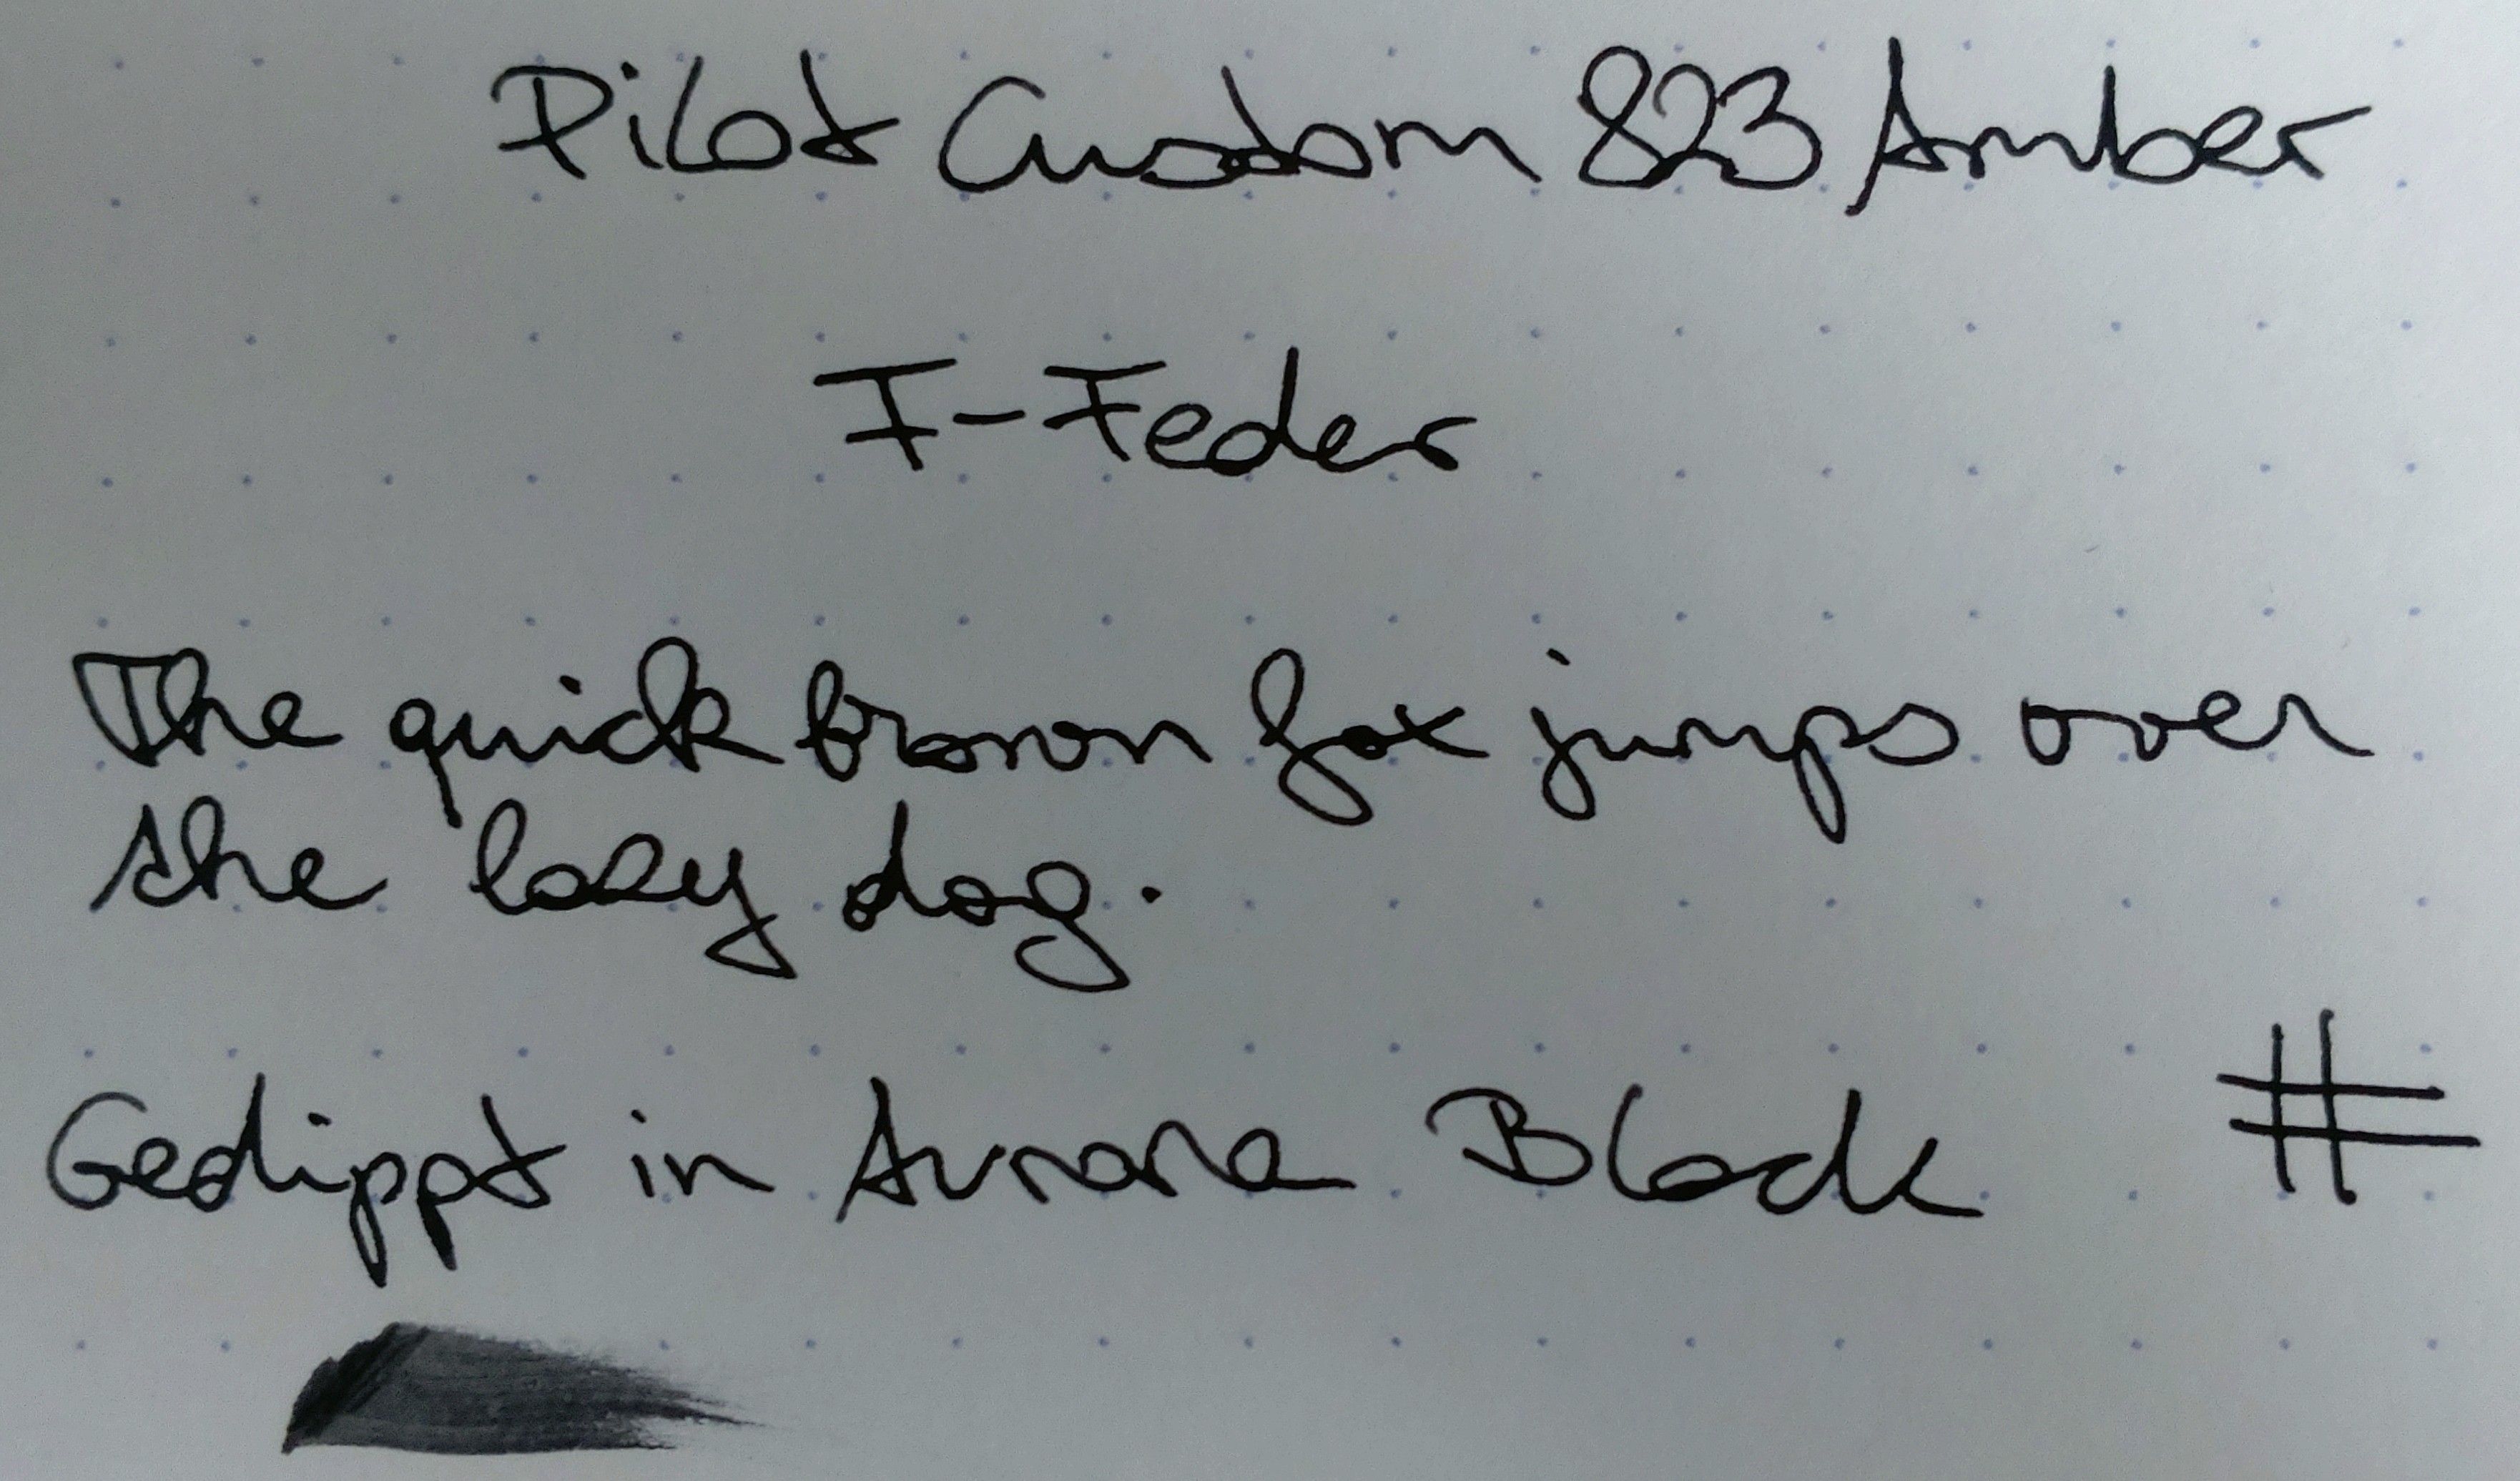 Pilot Custom 823 Amber
F-Feder
The quick brown fox jumps over
the lazy dog.
Gedippt in Aurora Black #